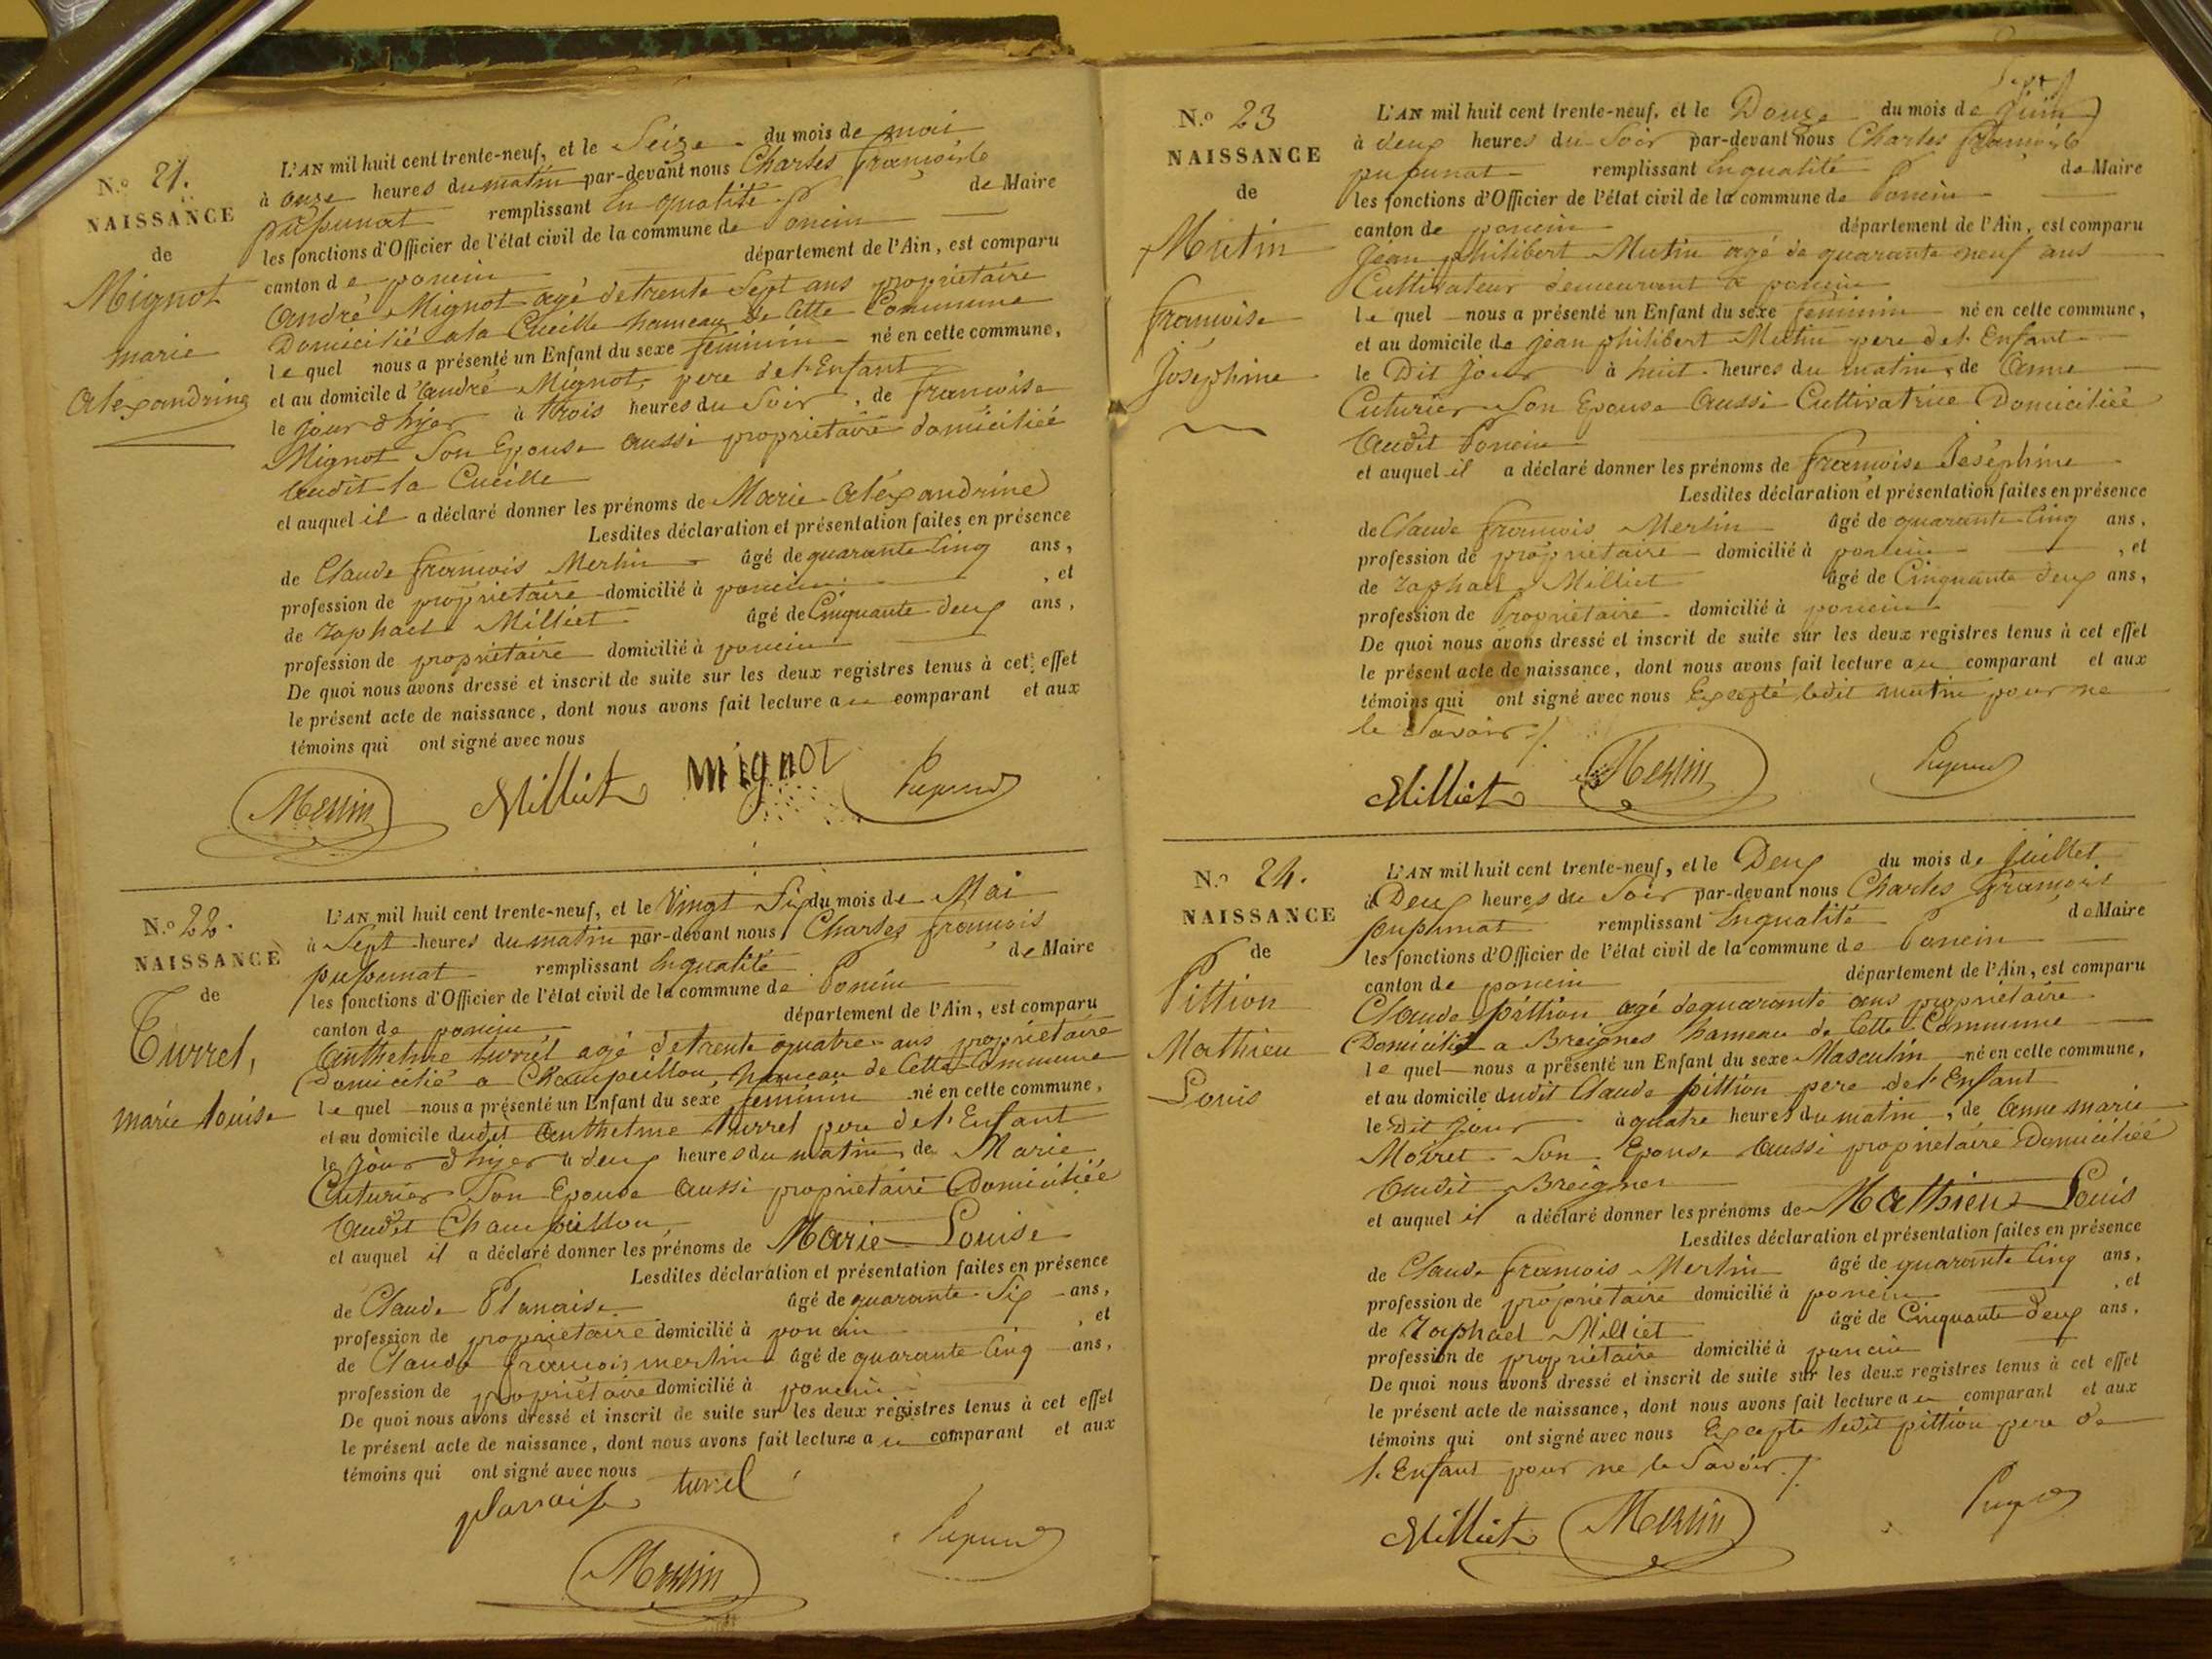 N.o 21.
NAISSANCE
de
Mignot
marie
Alexandrine
L'AN mil huit cent trente-neuf, et le Seize du mois de mai
à onze heures du matin par-devant nous Charles françois
pupunat remplissant En qualité de Maire
les fonctions d'Officier de l'état civil de la commune de Poncin
canton de poncin département de l'Ain, est comparu
André Mignot agé de trente Sept ans propriétaire
Domicilié a la Cueille hameau de Cette Commune
le quel nous a présenté un Enfant du sexe féminin né en cette commune,
et au domicile d'André Mignot, pere de l'Enfant
le jour d'hyer à trois heures du Soir, de françoise
Mignot Son Epouse aussi propriétaire domiciliée
audit la Cueille
et auquel il a déclaré donner les prénoms de Marie Aléxandrine
Lesdites déclaration et présentation faites en présence
de Claude françois Merlin âgé de quarante Cinq ans,
profession de propriétaire domicilié à poncin, et
de raphael Milliet âgé de Cinquante deux ans,
profession de propriétaire domicilié à poncin
De quoi nous avons dressé et inscrit de suite sur les deux registres tenus à cet effet
le présent acte de naissance, dont nous avons fait lecture au comparant et aux
témoins qui ont signé avec nous
Merlin Milliet mignot Pupunat
N.o 22.
NAISSANCE
de
Turrel,
marie louise
L'AN mil huit cent trente-neuf, et le Vingt Six du mois de Mai
à Sept heures du matin par-devant nous Charles françois
pupunat remplissant En qualité de Maire
les fonctions d'Officier de l'état civil de la commune de Poncin
canton de poncin département de l'Ain, est comparu
Anthelme turrel agé de trente quatre ans propriétaire
Domicilié a Champeillon, hameau de Cette Commune
le quel nous a présenté un Enfant du sexe féminin né en cette commune,
et au domicile dudit Anthelme turrel pere de l'Enfant
le jour d'hyer à deux heures du matin, de Marie
Cuturier Son Epouse aussi propriétaire Domiciliée
audit Champeillon,
et auquel il a déclaré donner les prénoms de Marie Louise
Lesdites déclaration et présentation faites en présence
de Claude Planaise âgé de quarante Six ans,
profession de propriétaire domicilié à poncin, et
de Claude françois merlin âgé de quarante Cinq ans,
profession de propriétaire domicilié à poncin
De quoi nous avons dressé et inscrit de suite sur les deux registres tenus à cet effet
le présent acte de naissance, dont nous avons fait lecture au comparant et aux
témoins qui ont signé avec nous
planaise turel
Merlin Pupunat
N.o 23
NAISSANCE
de
Mutin
françoise
Joséphine
L'AN mil huit cent trente-neuf, et le Douze du mois de Juin
à deux heures du Soir par-devant nous Charles françois
pupunat remplissant En qualité de Maire
les fonctions d'Officier de l'état civil de la commune de Poncin
canton de poncin département de l'Ain, est comparu
Jean philibert Mutin agé de quarante neuf ans
Cultivateur demeurant a poncin
le quel nous a présenté un Enfant du sexe féminin né en cette commune,
et au domicile de jean philibert Mutin pere de l'Enfant
le Dit Jour à huit heures du matin, de Anne
Cuturier Son Epouse Aussi Cultivatrice Domiciliée
Audit Poncin
et auquel il a déclaré donner les prénoms de françoise Joséphine
Lesdites déclaration et présentation faites en présence
de Claude françois Merlin âgé de quarante Cinq ans,
profession de propriétaire domicilié à poncin, et
de raphael Milliet âgé de Cinquante deux ans,
profession de Propriétaire domicilié à poncin
De quoi nous avons dressé et inscrit de suite sur les deux registres tenus à cet effet
le présent acte de naissance, dont nous avons fait lecture au comparant et aux
témoins qui ont signé avec nous Excepté ledit mutin pour ne
le Savoir ./.
Milliet Merlin Pupunat
N.o 24.
NAISSANCE
de
Pittion
Mathieu
Louis
L'AN mil huit cent trente-neuf, et le Deux du mois de Juillet
à Deux heures du Soir par-devant nous Charles françois
pupunat remplissant En qualité de Maire
les fonctions d'Officier de l'état civil de la commune de Poncin
canton de poncin département de l'Ain, est comparu
Claude pittion agé de quarante ans propriétaire
Domicilié a Breignes hameau de Cette Commune
le quel nous a présenté un Enfant du sexe Masculin né en cette commune,
et au domicile dudit Claude pittion pere de l'Enfant
le Dit Jour à quatre heures du matin, de Anne marie
Moiret Son Epouse Aussi propriétaire Domiciliée
Audit Breignes
et auquel il a déclaré donner les prénoms de Mathieu Louis
Lesdites déclaration et présentation faites en présence
de Claude françois Merlin âgé de quarante Cinq ans,
profession de propriétaire domicilié à poncin, et
de raphael Milliet âgé de Cinquante deux ans,
profession de propriétaire domicilié à poncin
De quoi nous avons dressé et inscrit de suite sur les deux registres tenus à cet effet
le présent acte de naissance, dont nous avons fait lecture au comparant et aux
témoins qui ont signé avec nous Excepte ledit pittion pere de
l'Enfant pour ne le Savoir ./.
Milliet Merlin